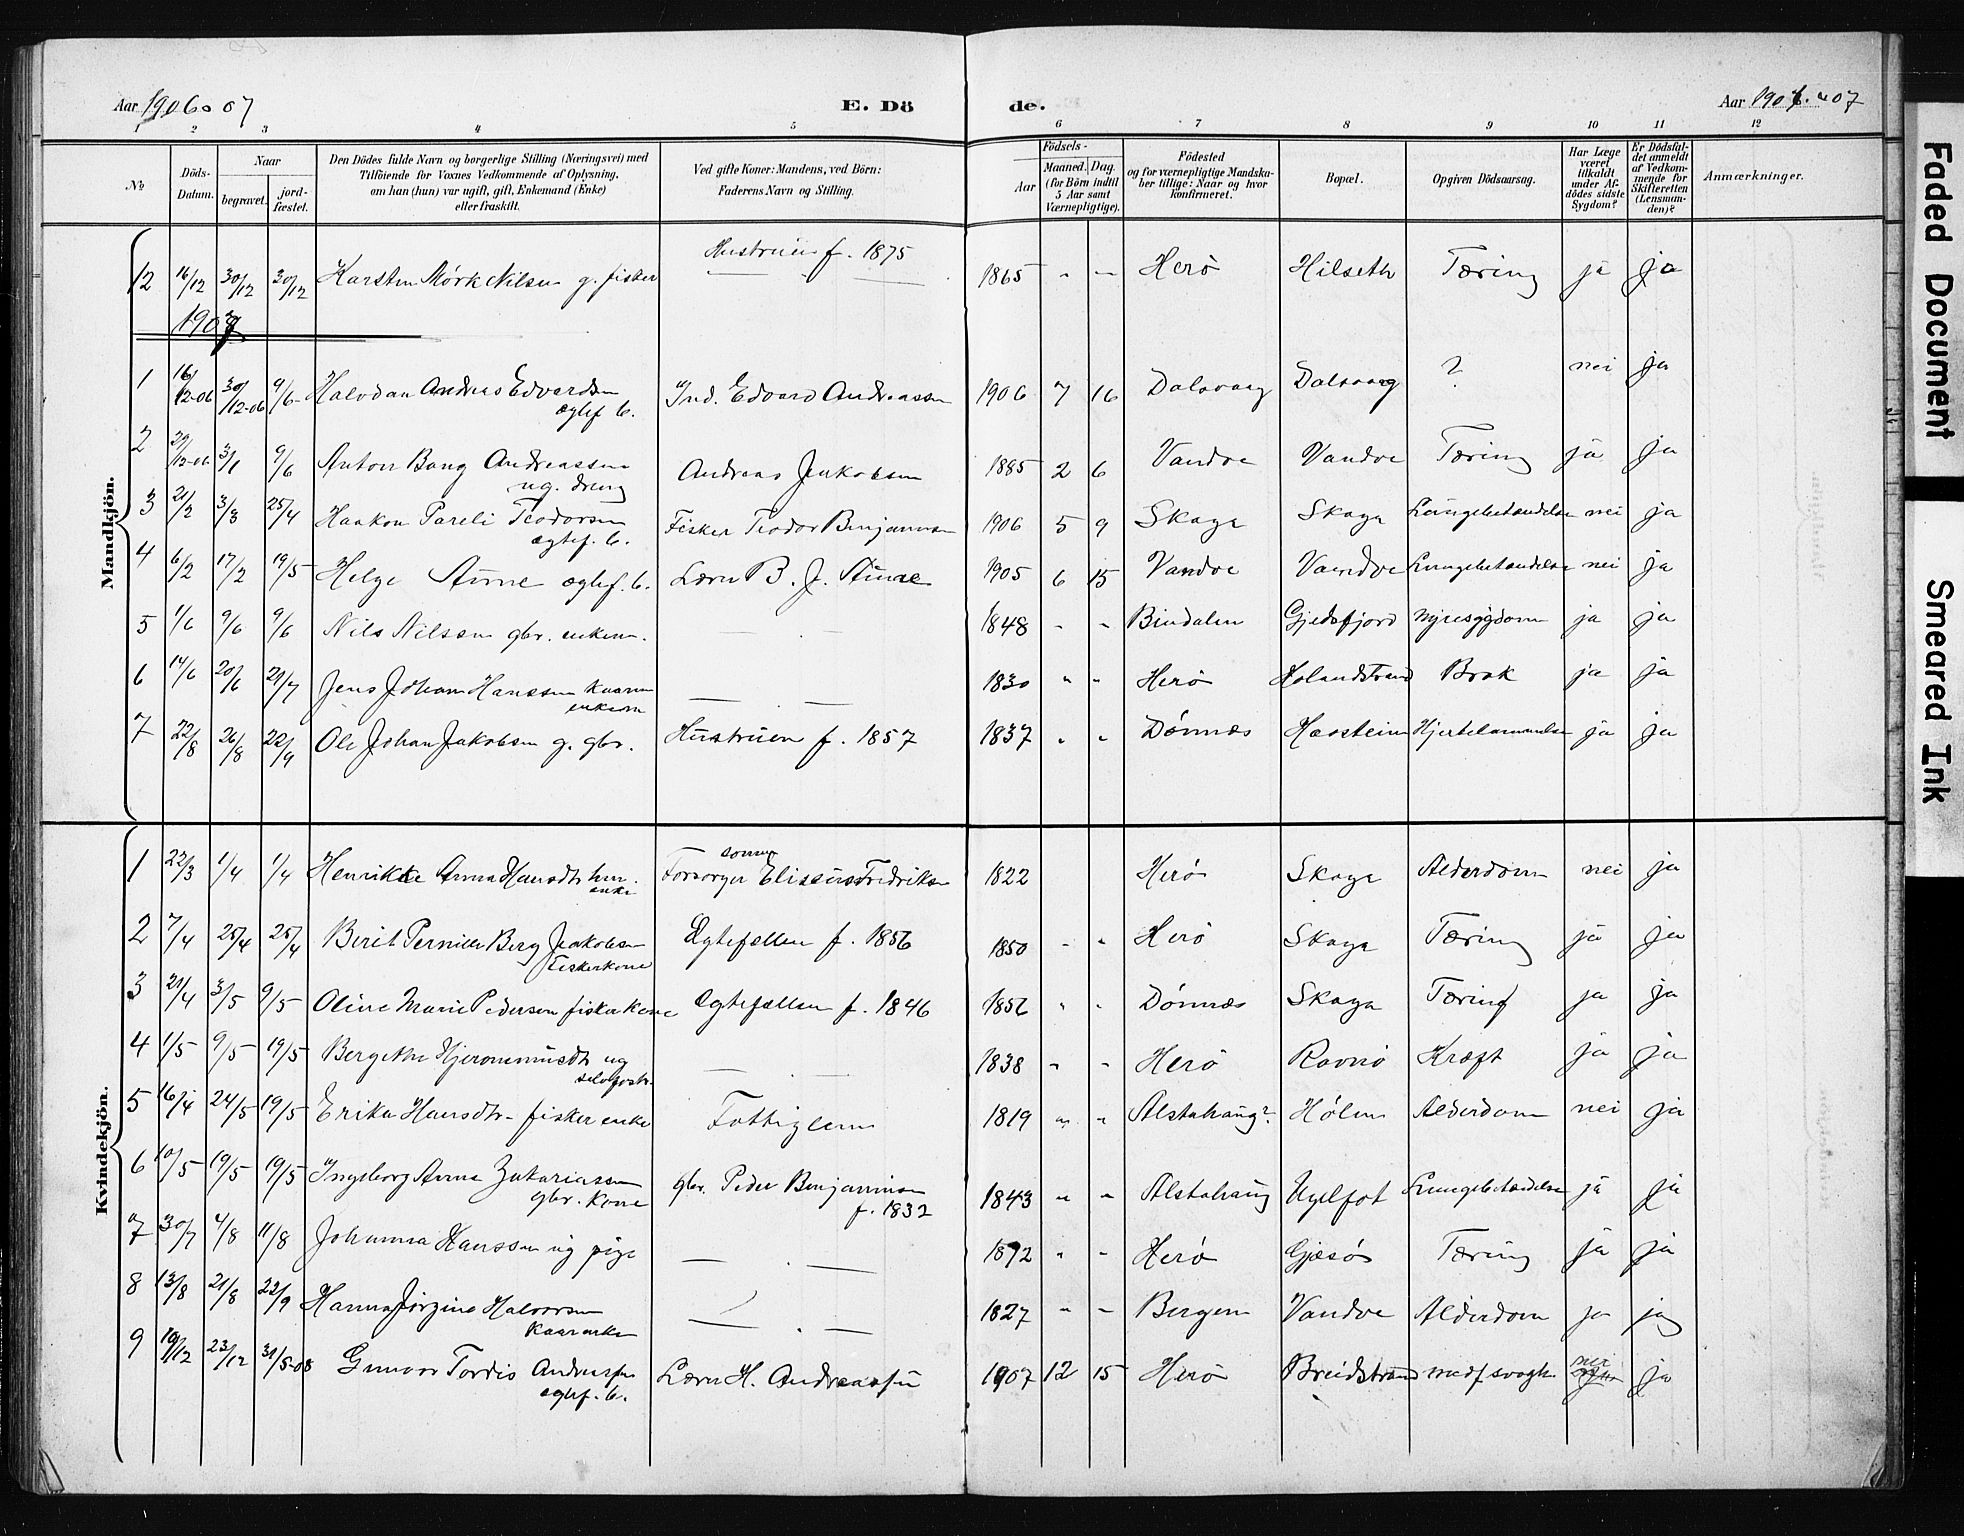 Aar 1906 o 07
E. Dö
de.
Aar 1906. o 07
1 2 3 4 5 6 7 8 9 10 11 12
№
Döds-
Datum.
Naar
begravet.
jord-
fæstet.
Den Dödes fulde Navn og borgerlige Stilling (Næringsvei) med
Tilföiende for Voxnes Vedkommende af Oplysning,
om han (hun) var ugift, gift, Enkemand (Enke)
eller fraskilt.
Ved gifte Koner: Mandens, ved Börn:
Faderens Navn og Stilling.
Födsels-
Aar
Maaned. Dag.
(for Börn indtil
5 Aar samt
Værnepligtige).
Födested
og for værnepligtige Mandska-
ber tillige: Naar og hvor
konfirmeret.
Bopæl.
Opgiven Dödsaarsag.
Har Læge
været
tilkaldt
under Af-
dödes sidste
Sygdom?
Er Dödsfal-
det anmeldt
af Vedkom-
mende for
Skifteretten
(Lensman-
den)?
Anmærkninger.
Mandkjön.
12 16/12 30/12 30/12 Karsten Mørk Nilsen g. fisker Hustruen f. 1875 1865 " — Herö Hilseth Tæring ja ja
1907
1 16/12-06 30/12-06 9/6 Halvdan Andreas Edvardsen Ind. Edvard Andreassen 1906 7 16 Dalsvaag Dalsvaag ? nei ja
ægtef. b.
2 29/12-06 3/1 9/6 Anton Bang Andreassen Andreas Jakobsen 1885 2 6 Vandve Vandve Tæring ja ja
ug. dreng
3 21/2 3/3 25/4 Haakon Pareli Teodorsen Fisker Teodor Benjaminsen 1906 5 9 Skaga Skaga Lungebetændelse nei ja
ægtef. b.
4 6/2 17/2 19/5 Helge Aune ægtef. b. Lærer B. J. Aune 1905 6 15 Vandve Vandve Lungebetændelse nei ja
5 1/6 9/6 9/6 Nils Nilssen gbr. enkem. — . — 1848 " " Bindalen Gjedsfjord nyresygdom ja ja
6 14/6 20/6 29/7 Jens Johan Hanssen kaarm — . — 1830 " " Herö Holandstrand Brok ja ja
enkem
7 22/8 26/8 22/9 Ole Johan Jakobsen g. gbr. Hustruen f. 1857 1837 " " Dönnæs Hæstein Hjertelammelse ja ja
Kvindekjön.
1 22/3 1/4 1/4 Henrikke Anna Hansdtr Forsørger sønnen Eliseus Fredriksen 1822 Herö Skaga Alderdom nei ja
enke
2 7/4 25/4 25/4 Berit Pernille Berg Jakobsen Ægtefællen f. 1856 1850 " " Herö Skaga Tæring ja ja
Fiskerkone
3 21/4 3/5 9/5 Oline Marie Pedersen fiskerkone Ægtefællen f. 1846 1856 " " Dönnæs Skaga Tæring ja ja
4 1/5 9/5 19/5 Bergethe Hjeronimusdtr ug — . — 1838 " " Herö Ravnö Kræft ja ja
selvforst.
5 16/4 24/5 19/5 Erika Hansdtr - fisker enke Fattiglem 1819 " " Alstahaug? Hölen Alderdom nei ja
6 10/5 19/5 19/5 Ingeborg Anna Zakariassen gbr. Peder Benjaminsen 1843 " " Alstahaug Ugelfot Lungebetændelse ja ja
gbr. kone f. 1832
7 30/7 4/8 11/8 Johanna Hanssen ug pige — . — 1872 " " Herö Gjæsö Tæring ja ja
8 13/8 21/8 22/9 Hanna Jørgine Halvorsen — . — 1827 " " Bergen Vandve Alderdom ja ja
Kaarenke
9 19/12 23/12 31/5-08 Gunvor Tordis Andreassen Lærer H. Andreassen 1907 12 15 Herö Breidstrand medf svagh nei ja
ægtef. b.
Faded Document
Smeared Ink